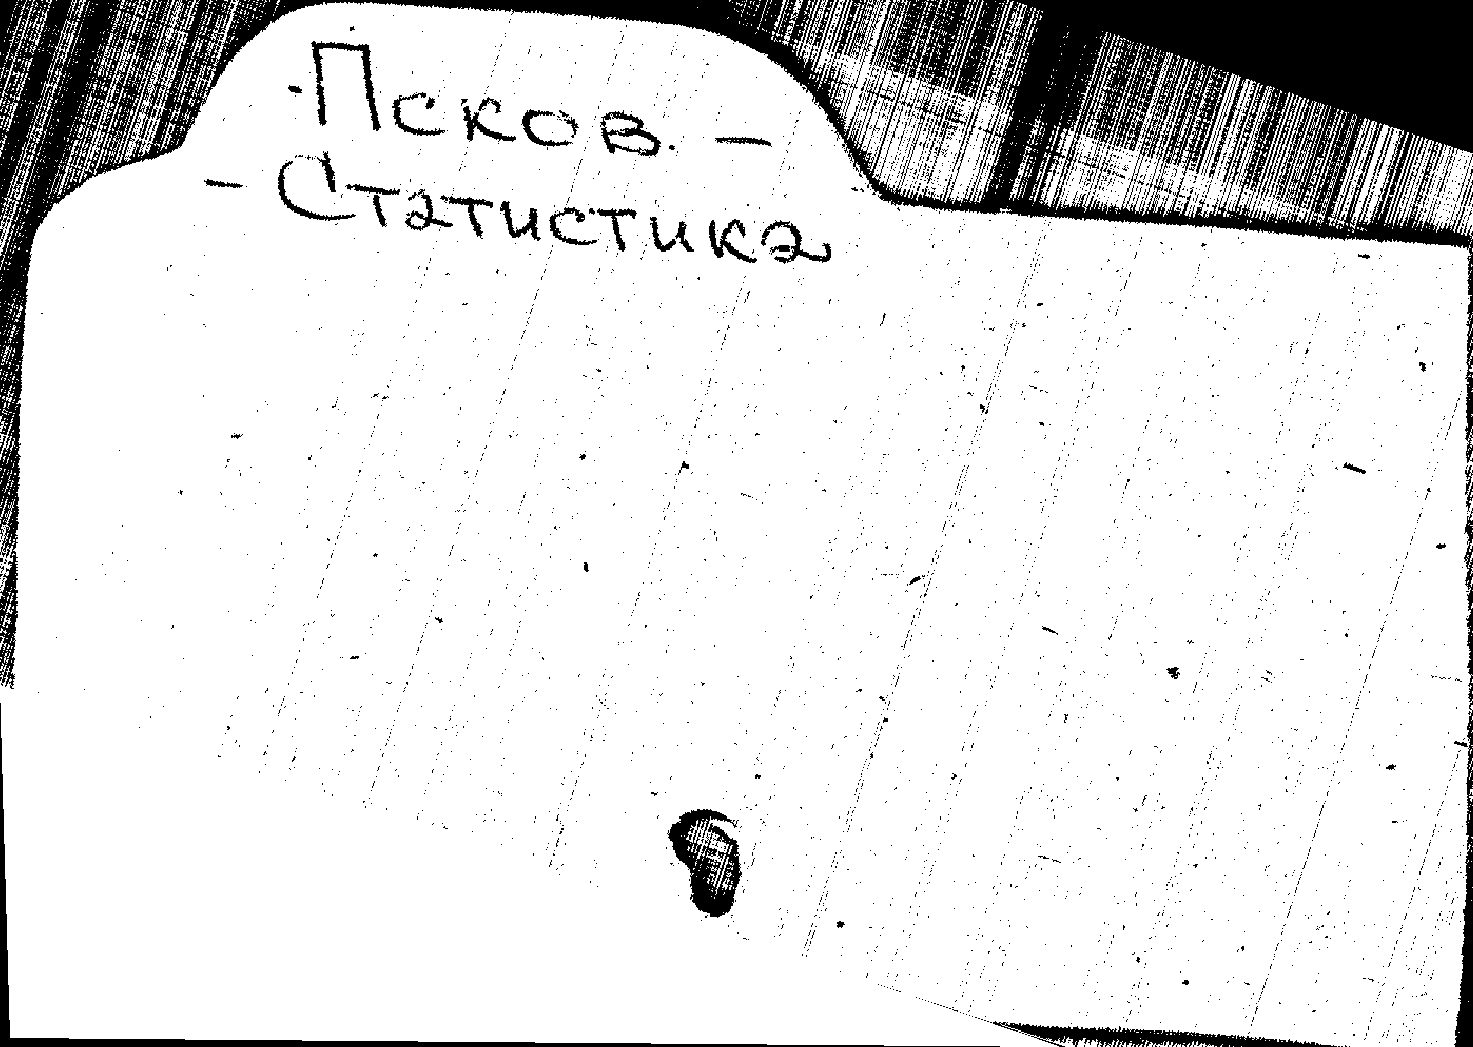 Псков. –
– Статистика